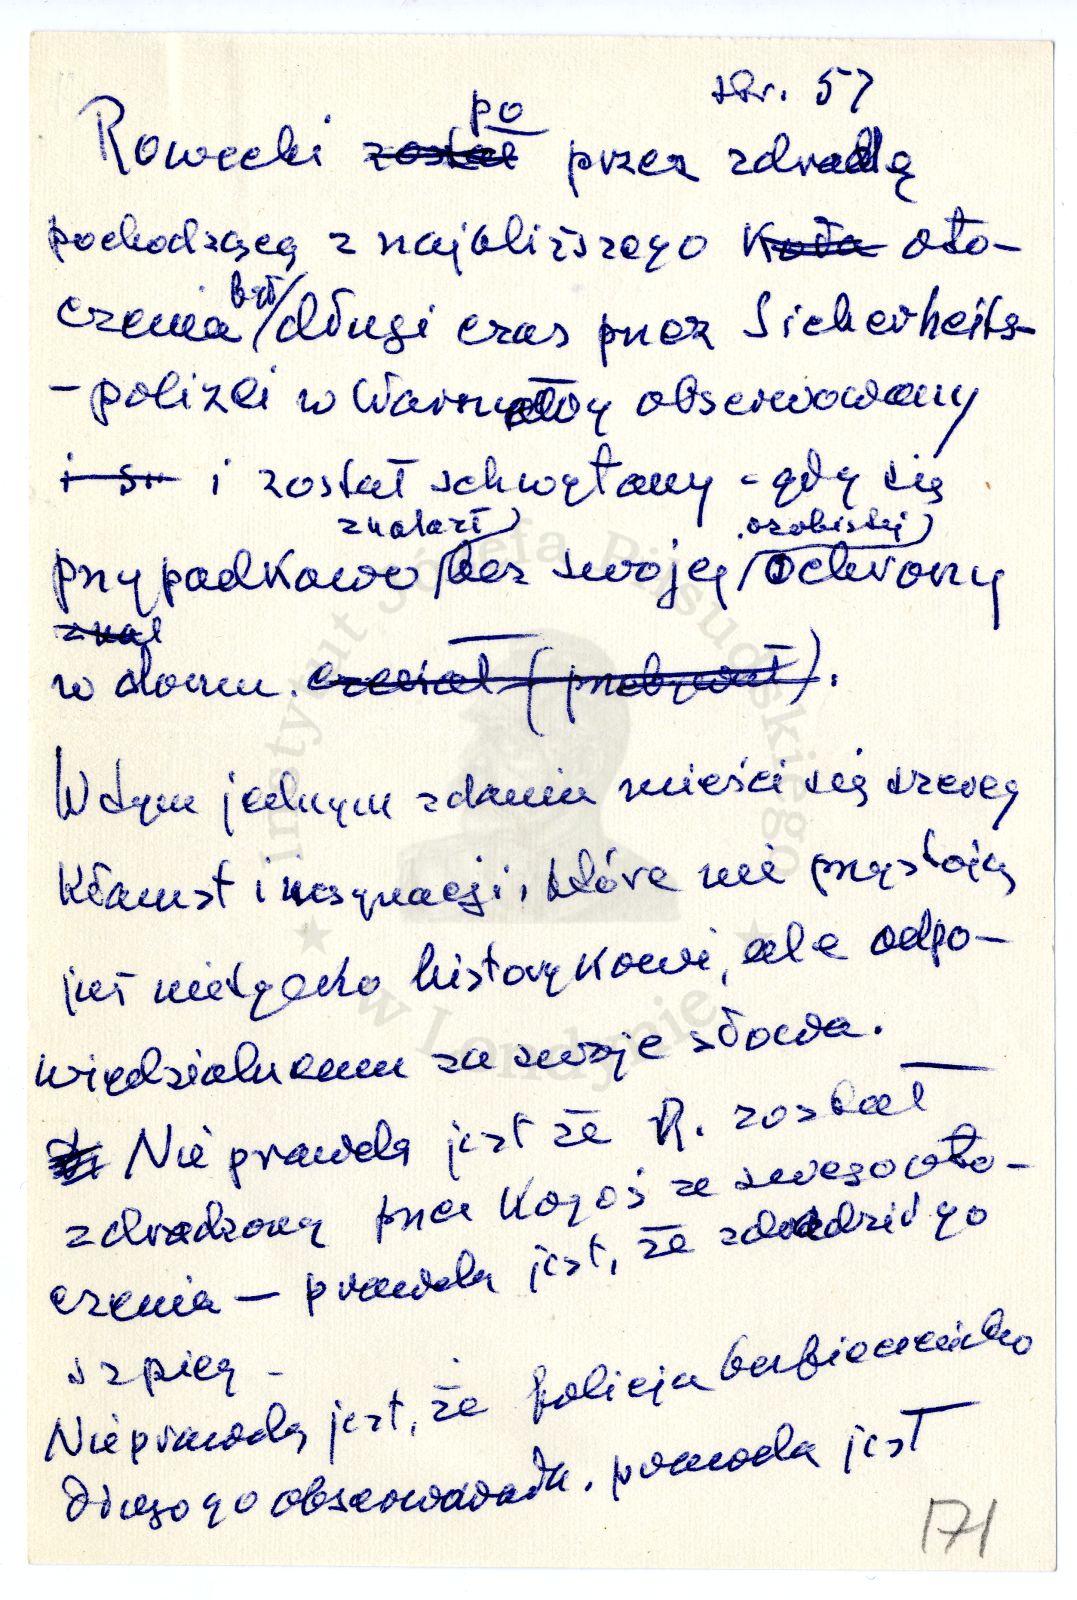 str. 57
po
Rowecki został przez zdradę
pochodzącą z najbliższego koła oto-
czenia był długi czas przez Sicherheits-
-polizei w Warszawie obserwowany
i su i został schwytany - gdy się
znalazł osobistej
przypadkowo bez swojej ochrony
znal
w domu. czekał (przebywał).
W tym jednym zdaniu mieści się szereg
kłamst i insynuacji, które nie przystoją
już nietylko historykowi, ale odpo-
wiedzialnemu za swoje słowa.
Nieprawdą jest że R. został
zdradzony przez kogoś ze swego oto-
czenia - prawdą jest, że zdradził go
szpieg -
Nieprawdą jest, że policja bezpieczeństwa
długo go obserwowała. prawdą jest
171
Instytut Józefa Piłsudskiego
w Londynie